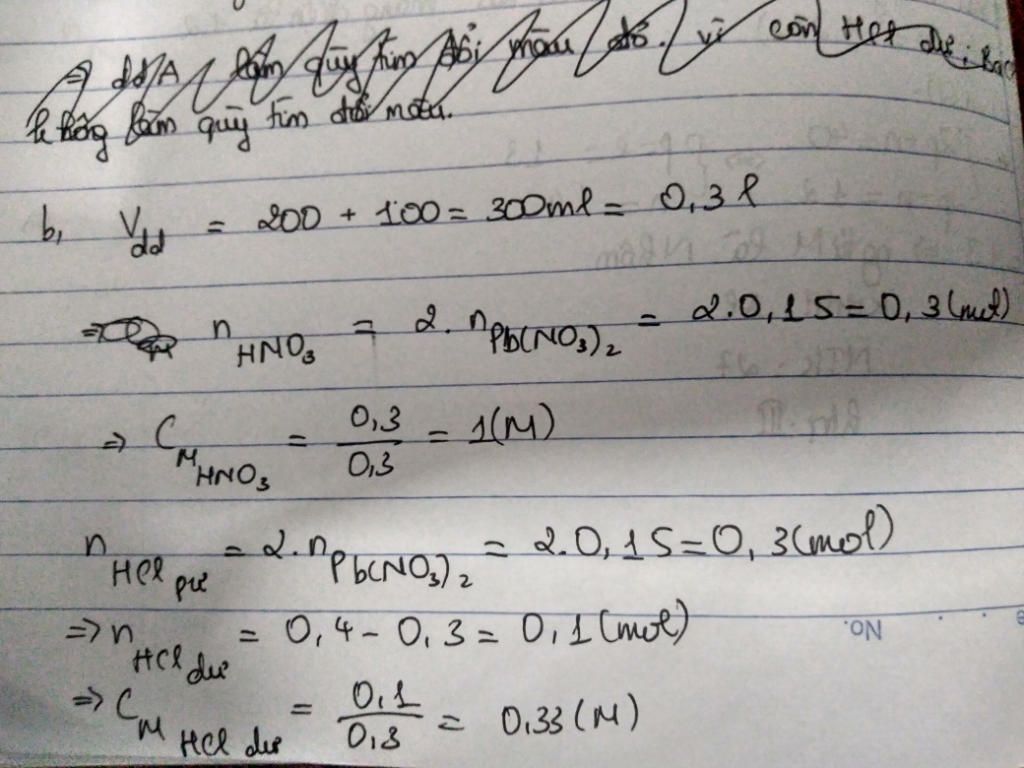 ⇒ ddA làm quỳ tím đổi màu đỏ. vì còn HCl dư,
không làm quỳ tím đổi màu.
b, Vdd = 200 + 100 = 300ml = 0,3 l
⇒ nHNO3 = 2. nPb(NO3)2 = 2.0,15 = 0,3 (mol)
⇒ CM HNO3 = 0,3/0,3 = 1(M)
nHCl pư = 2.nPb(NO3)2 = 2.0,15 = 0,3 (mol)
⇒ nHCl dư = 0,4 - 0,3 = 0,1 (mol)
No.
⇒ CM HCl dư = 0,1/0,3 = 0,33 (M)